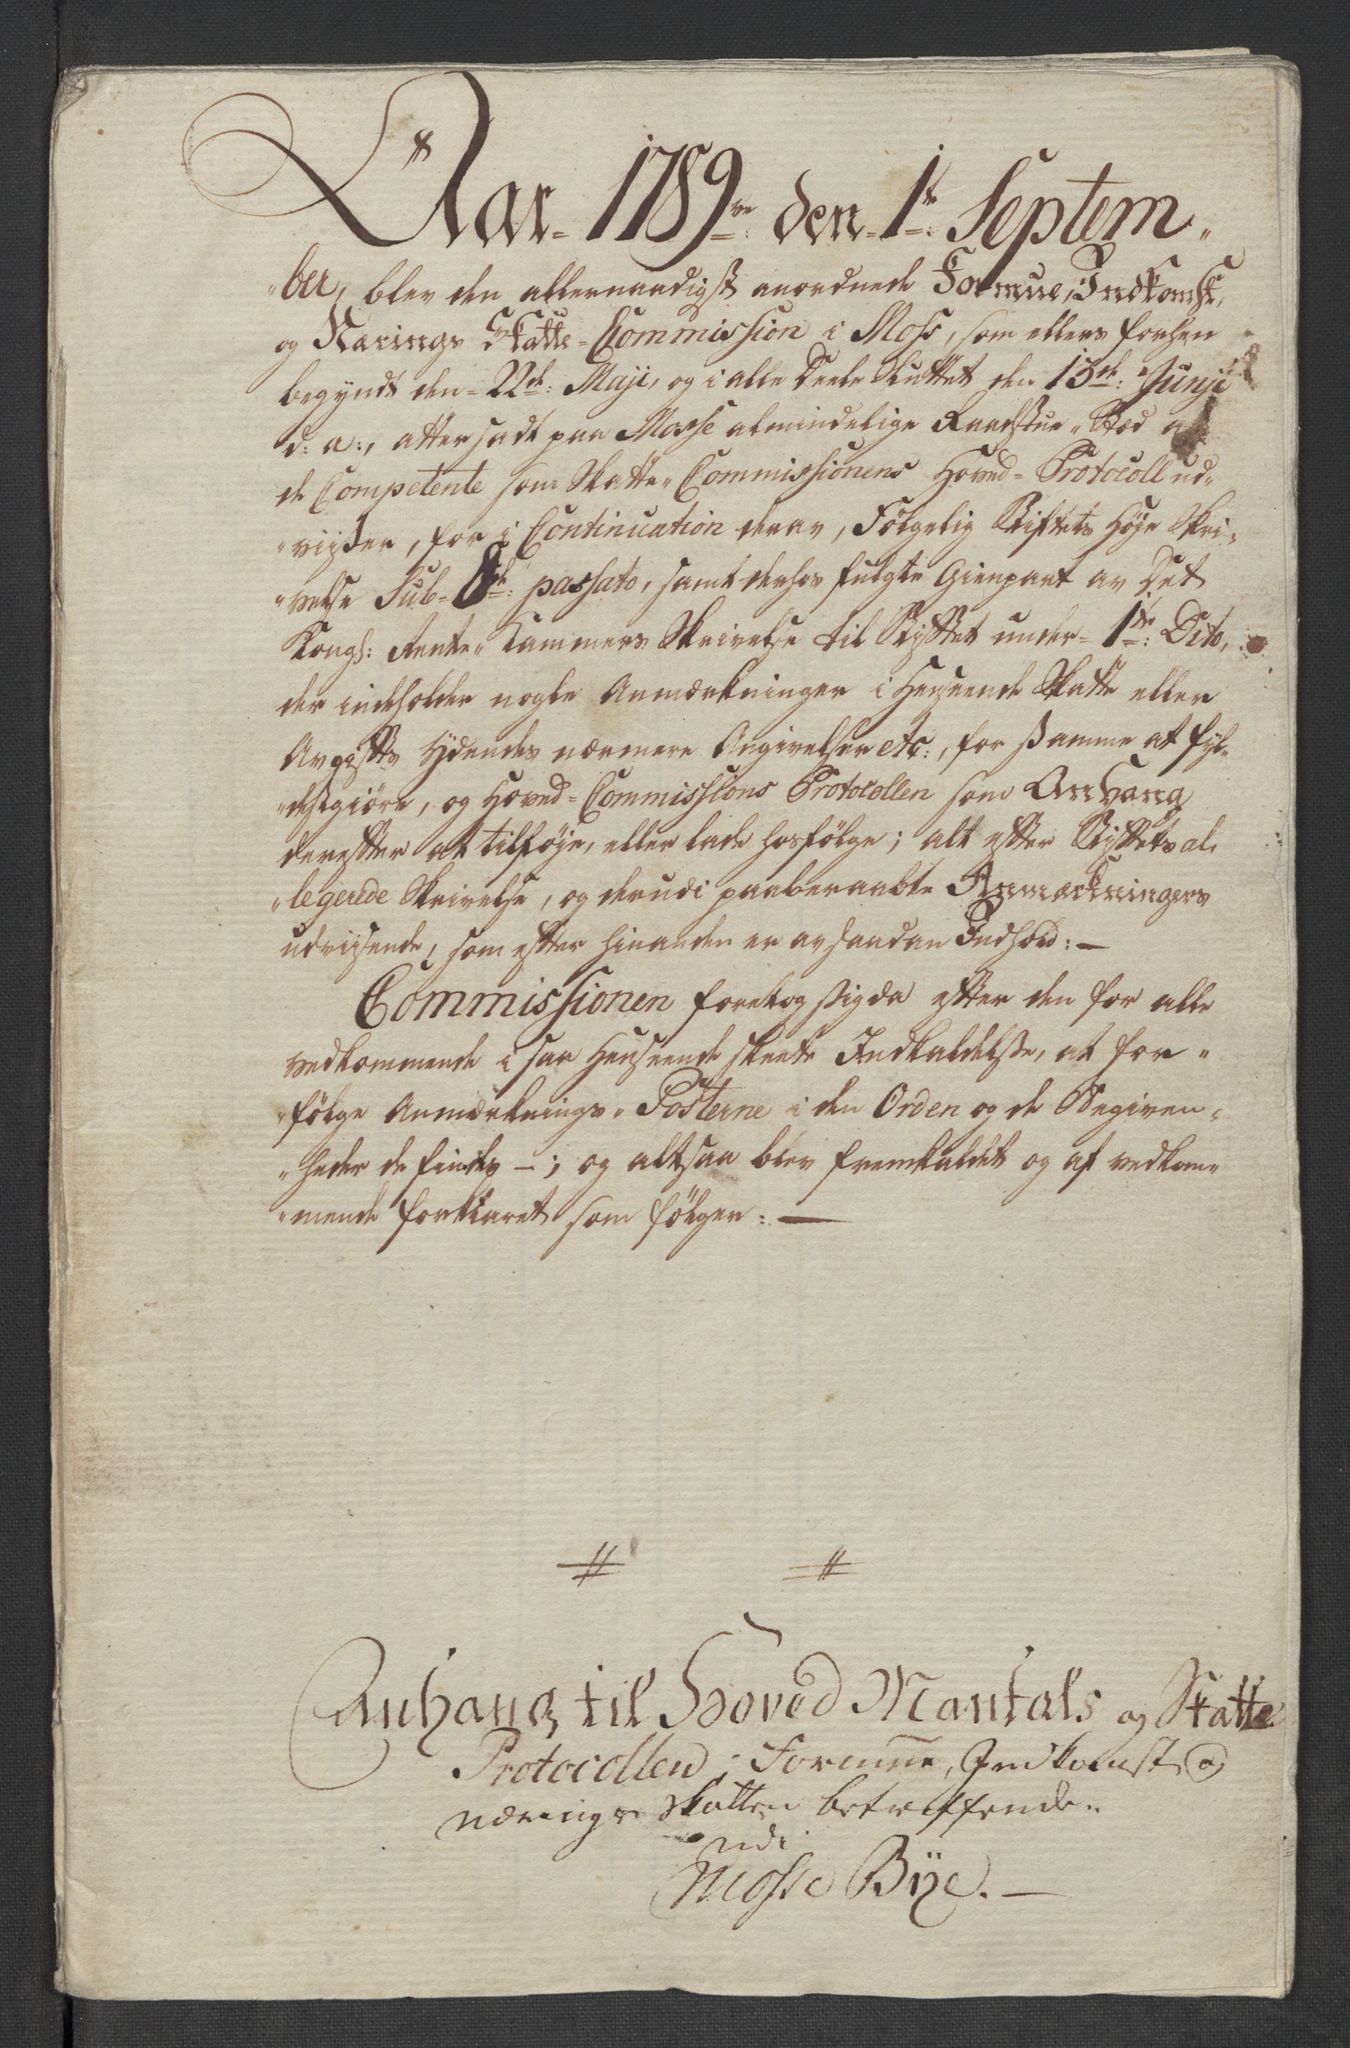 Aar 1789ve den 1te Septem„
„ber, blev den allernaadigst anordnede Formue, Indkomst,
og Nærings Skatte-Commission i Moss, som ellers forhen
begyndt den 22de Maji, og i alle Deele sluttet den 13de Junji
d: a:, atter sadt paa Mosse almindelige Raadstue-Stæd af
de Competente som Skatte-Commissionens Hoved-Protocoll ud„
„viiser, for i Continuation derav, Følgelig Stiftets Høje Skri„
„velse Sub 8de passato, samt derhos fulgte Gienpart av Det
Kongl: Rente-Cammers Skrivelse til Stiftet under 1te Dito,
der indeholder nogle Anmærkninger i Henseende Skatte eller
Avgifts Ydendes nærmere Angivelser etc:, for samme at fyl„
„destgiøre, og Hoved-Commissions Protocollen som Anhang
derefter at tilføje, eller lade hosfølge; alt efter Stiftets al„
„legerede Skrivelse, og derudi paaberaabte Anmærkningers
udvisende, som efter hinanden er av saadan Indhold: —
Commissionen foretog sig da efter den for alle
vedkommende i saa Henseende skeete Indkaldelse, at for„
„følge Anmærknings-Posterne i den Orden og de Begiven„
„heder de findes —; og altsaa blev fremkaldet og af vedkom„
„mende forklaret som følger: —
Anhang til Hoved Mantals og Skatte
Protocollen, Formue, Indkomst og
nærings skatten betreffende
udi
Mosse Bÿe. —